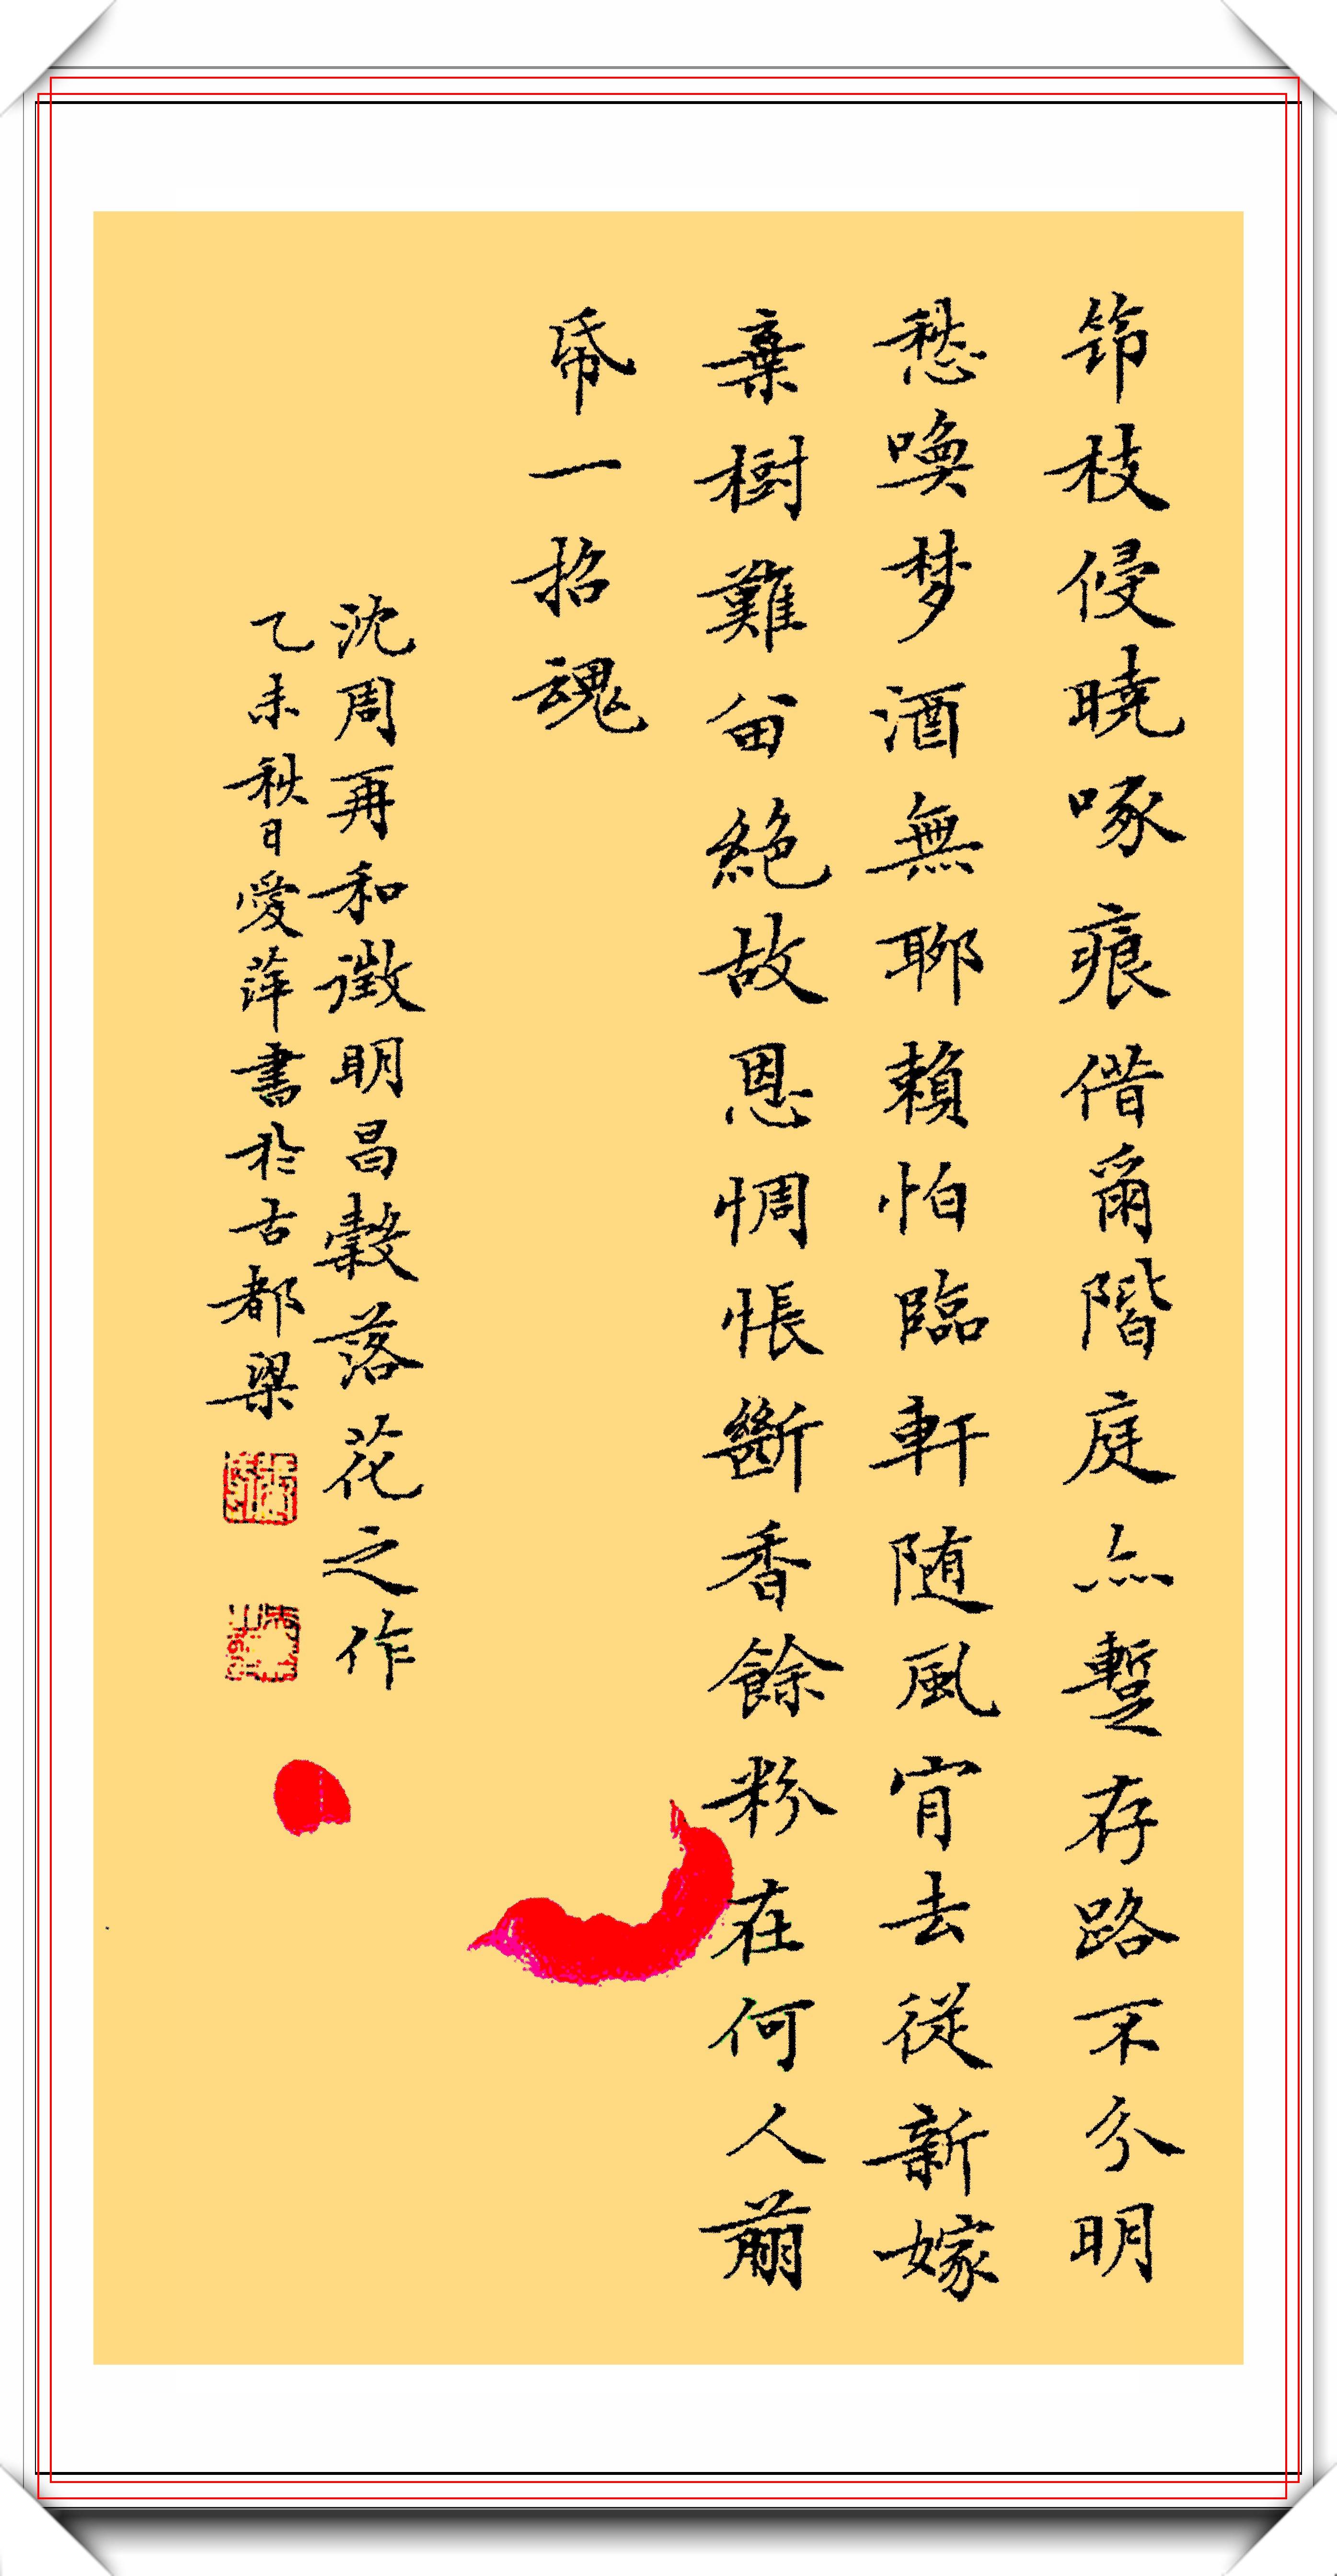 節枝侵曉啄痕偕爾階庭亦暫存路不分明
愁喚梦酒無聊賴怕臨軒随風肯去從新嫁
棄樹難留絕故恩惆悵斷香餘粉在何人剪
紙一招魂
沈周再和徵明昌穀落花之作
乙未秋日愛萍書於古都梁